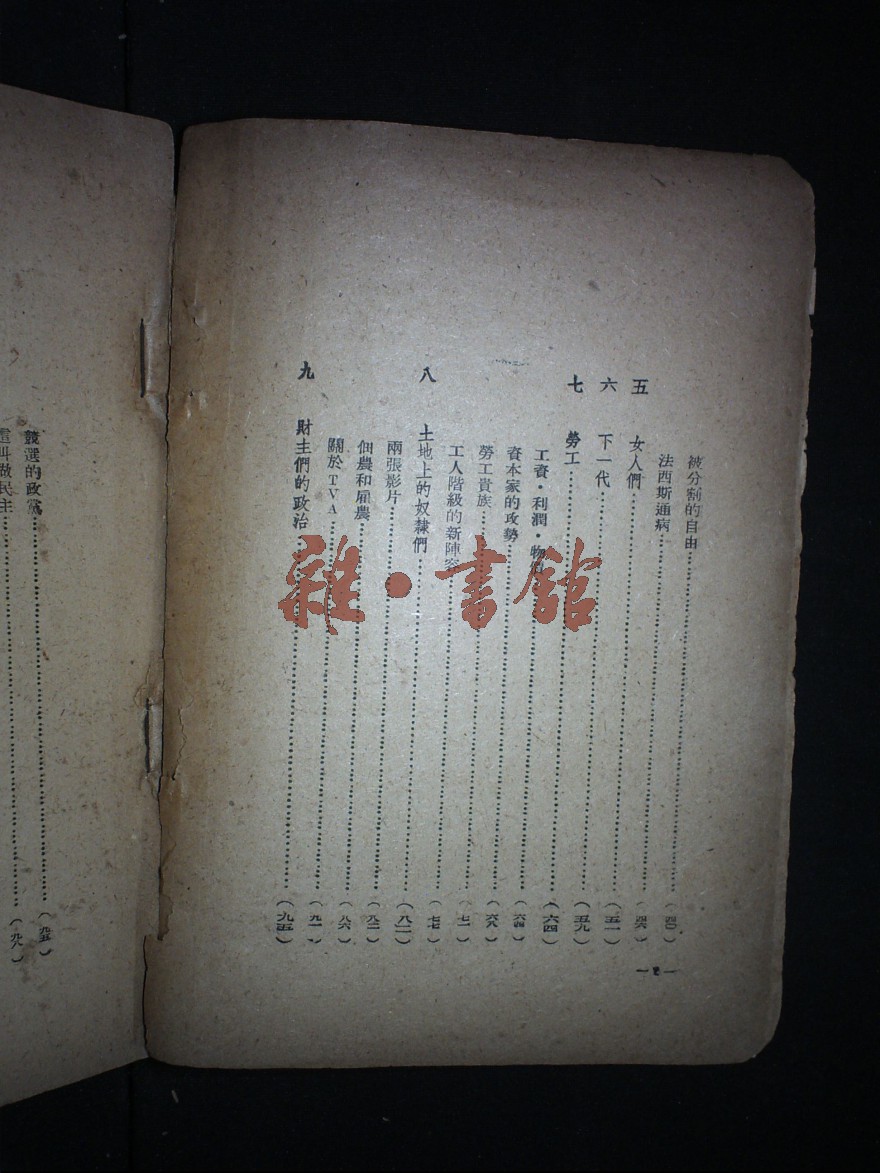 被分割的自由……(四〇)
法西斯通病……(四六)
五 女人們……(五一)
六 下一代……(五九)
七 勞工……(六四)
工資・利潤・物……(六四)
資本家的攻勢……(六八)
勞工貴族……(七一)
工人階級的新陣容……(七七)
八 土地上的奴隸們……(八二)
兩張影片……(八二)
佃農和雇農……(八六)
關於TVA……(九一)
九 財主們的政治……(九五)
—2—
競選的政黨……(九五)
這叫做民主……(九八)
雜・書館